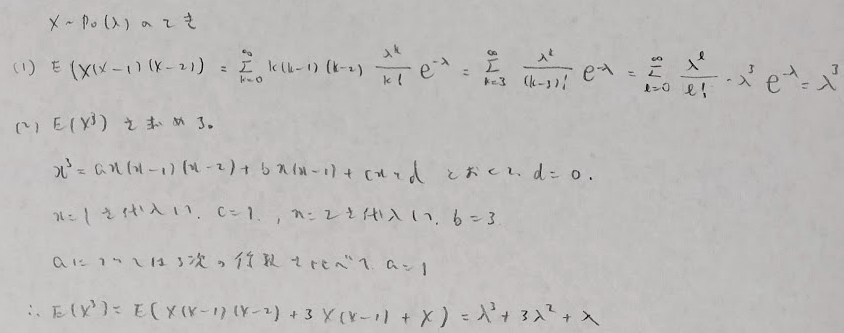 X ~ Po(λ) のとき
(1) E(X(X-1)(X-2)) = Σ_{k=0}^{∞} k(k-1)(k-2) λ^k/k! e^{-λ} = Σ_{k=3}^{∞} λ^k/(k-3)! e^{-λ} = Σ_{l=0}^{∞} λ^l/l! ・ λ^3 e^{-λ} = λ^3
(2) E(X^3) を求める。
x^3 = ax(x-1)(x-2) + bx(x-1) + cx + d とおくと, d = 0.
x=1 を代入して, c=1, x=2 を代入して, b=3
aについては3次の係数をくらべて a=1
∴ E(X^3) = E(X(X-1)(X-2) + 3X(X-1) + X) = λ^3 + 3λ^2 + λ